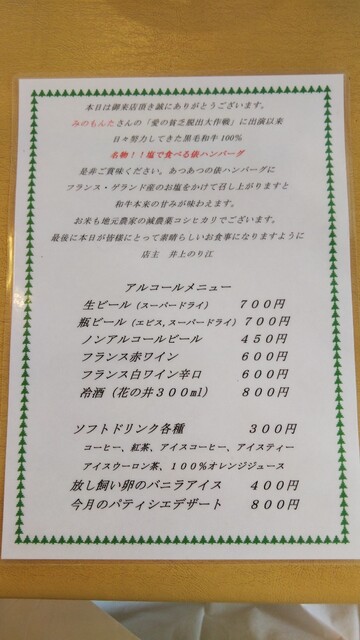 本日は御来店頂き誠にありがとうございます。
みのもんたさんの「愛の貧乏脱出大作戦」に出演以来
日々努力してきた黒毛和牛100%
名物!!塩で食べる俵ハンバーグ
是非ご賞味ください。あつあつの俵ハンバーグに
フランス・ゲランド産のお塩をかけて召し上がりますと
和牛本来の甘みが味わえます。
お米も地元農家の減農薬コシヒカリでございます。
最後に本日が皆様にとって素晴らしいお食事になりますように
店主 井上のり江
アルコールメニュー
生ビール(スーパードライ) 700円
瓶ビール(エビス,スーパードライ) 700円
ノンアルコールビール 450円
フランス赤ワイン 600円
フランス白ワイン辛口 600円
冷酒(花の井300ml) 800円
ソフトドリンク各種 300円
コーヒー、紅茶、アイスコーヒー、アイスティー
アイスウーロン茶、100%オレンジジュース
放し飼い卵のバニラアイス 400円
今月のパティシエデザート 800円